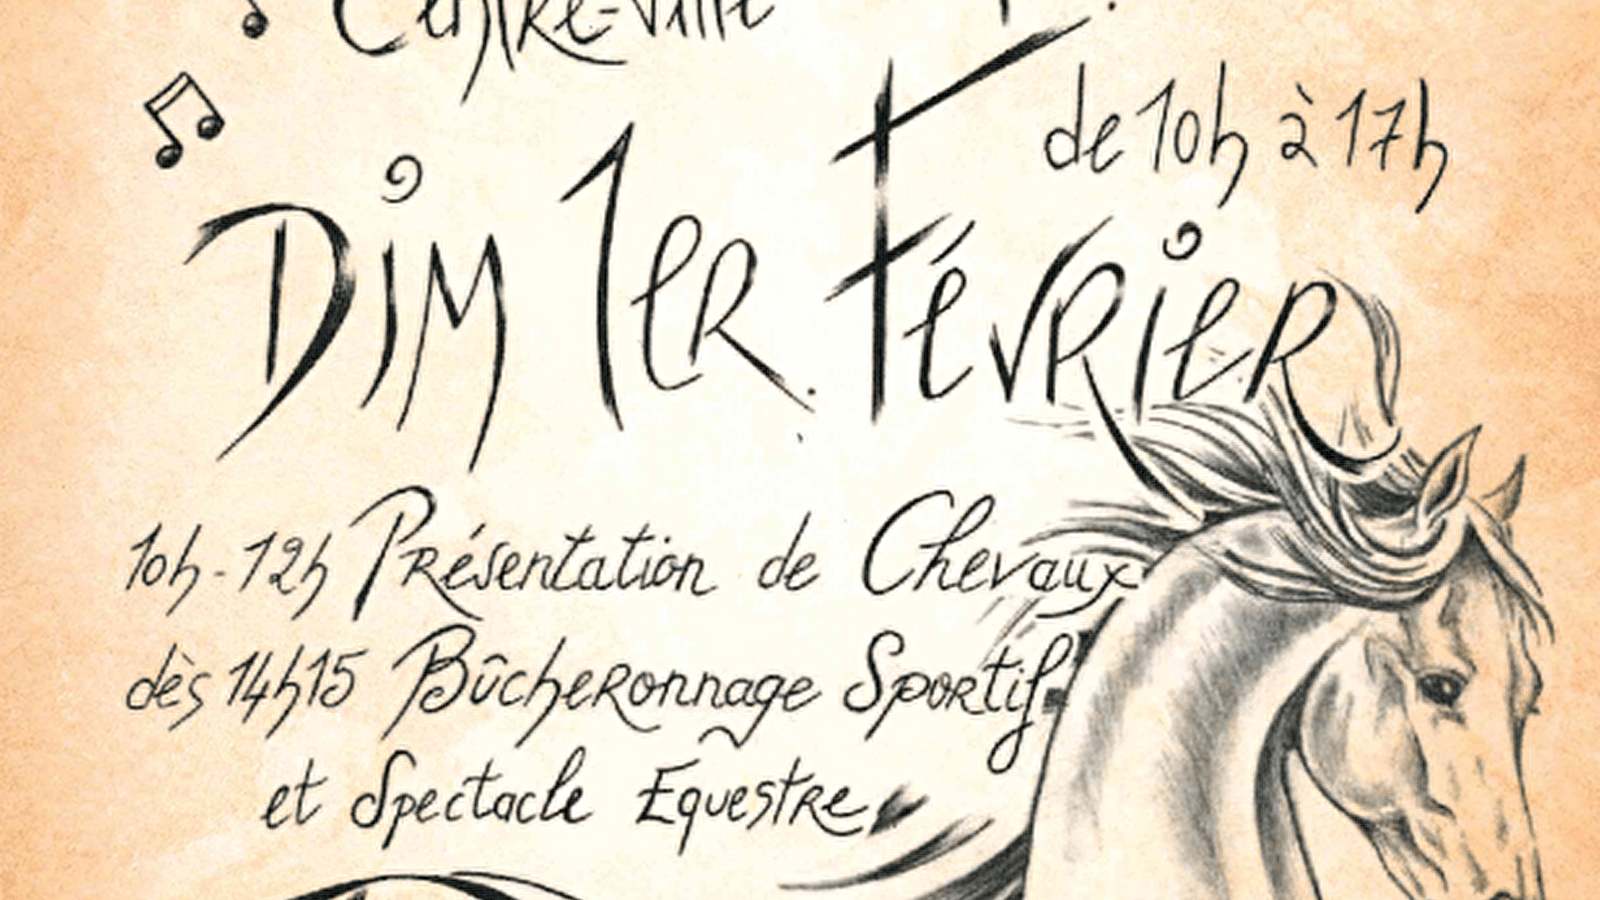 Centre-Ville
de 10h à 17h
Dim 1er Février
10h-12h Présentation de Chevaux
dès 14h15 Bûcheronnage Sportif
et Spectacle Equestre